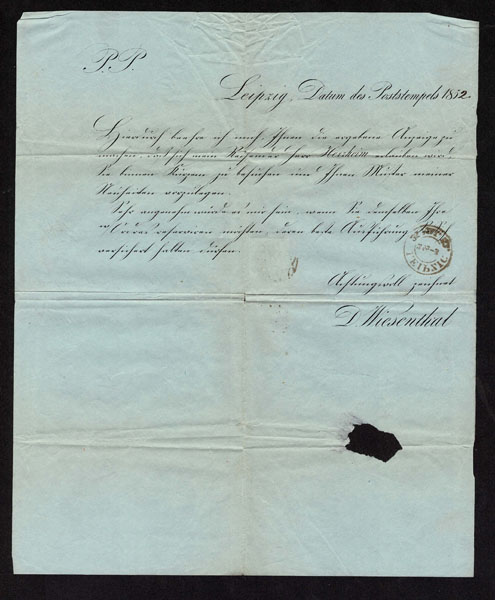 P. P.
Leipzig, Datum des Poststempels 1852.
Hierdurch beehre ich mich, Ihnen die ergebene Anzeige zu
machen, daß sich mein Reisender Herr erlauben wird,
Sie binnen Kurzem zu besuchen und Ihnen Muster meiner
Neuheiten vorzulegen.
Sehr angenehm würde es mir sein, wenn Sie demselben Ihre
Ordres reserviren möchten, deren beste Ausführung Sie
versichert halten dürfen.
LEIPZIG
Achtungsvoll zeichnet
D. Wiesenthal